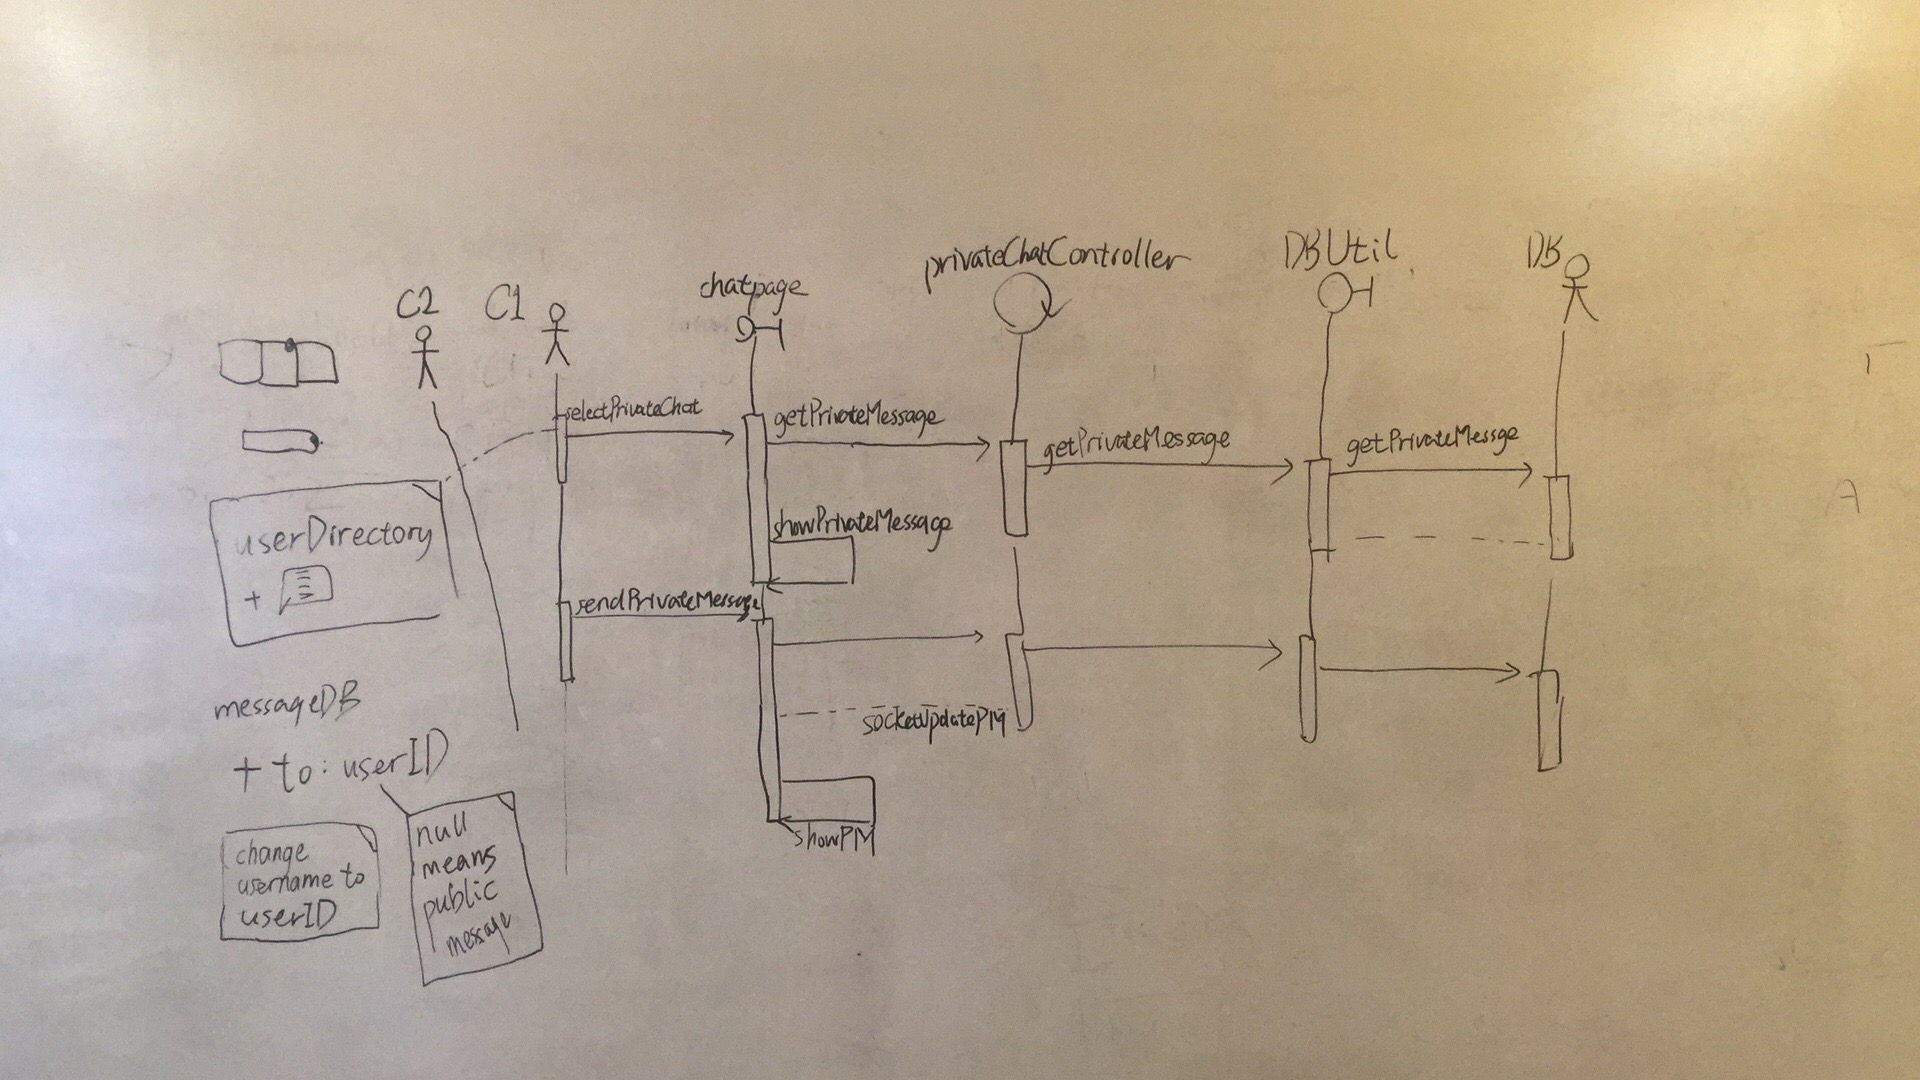 C2
C1
chatpage
privateChatController
DBUtil
DB
selectPrivateChat
getPrivateMessage
getPrivateMessage
getPrivateMessge
showPrivateMessage
sendPrivateMessage
socketUpdatePM
showPM
userDirectory
+
messageDB
+ to: userID
change
username to
userID
null
means
public
message
A